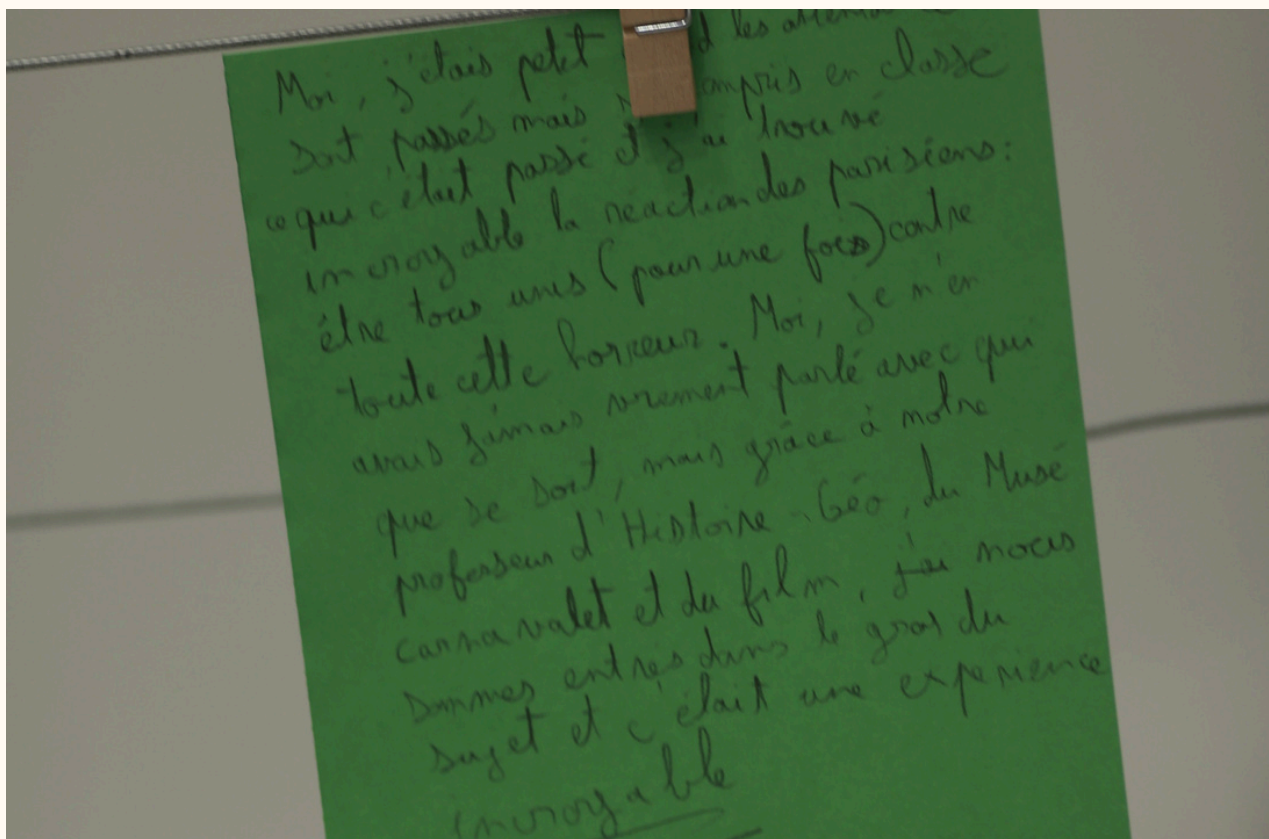 Moi, j'étais petit les
sont passés mais compris en classe
ce qui c'était passé et j'ai trouvé
incroyable la réaction des parisiens :
être tous unis (pour une fois) contre
toute cette horreur. Moi, je n'en
avais jamais vrement parlé avec qui
que se soit, mais grâce à notre
professeur d'Histoire-Géo, du Musé
carnavalet et du film, j'ai nous
sommes entrés dans le gros du
sujet et c'était une experience
incroyable